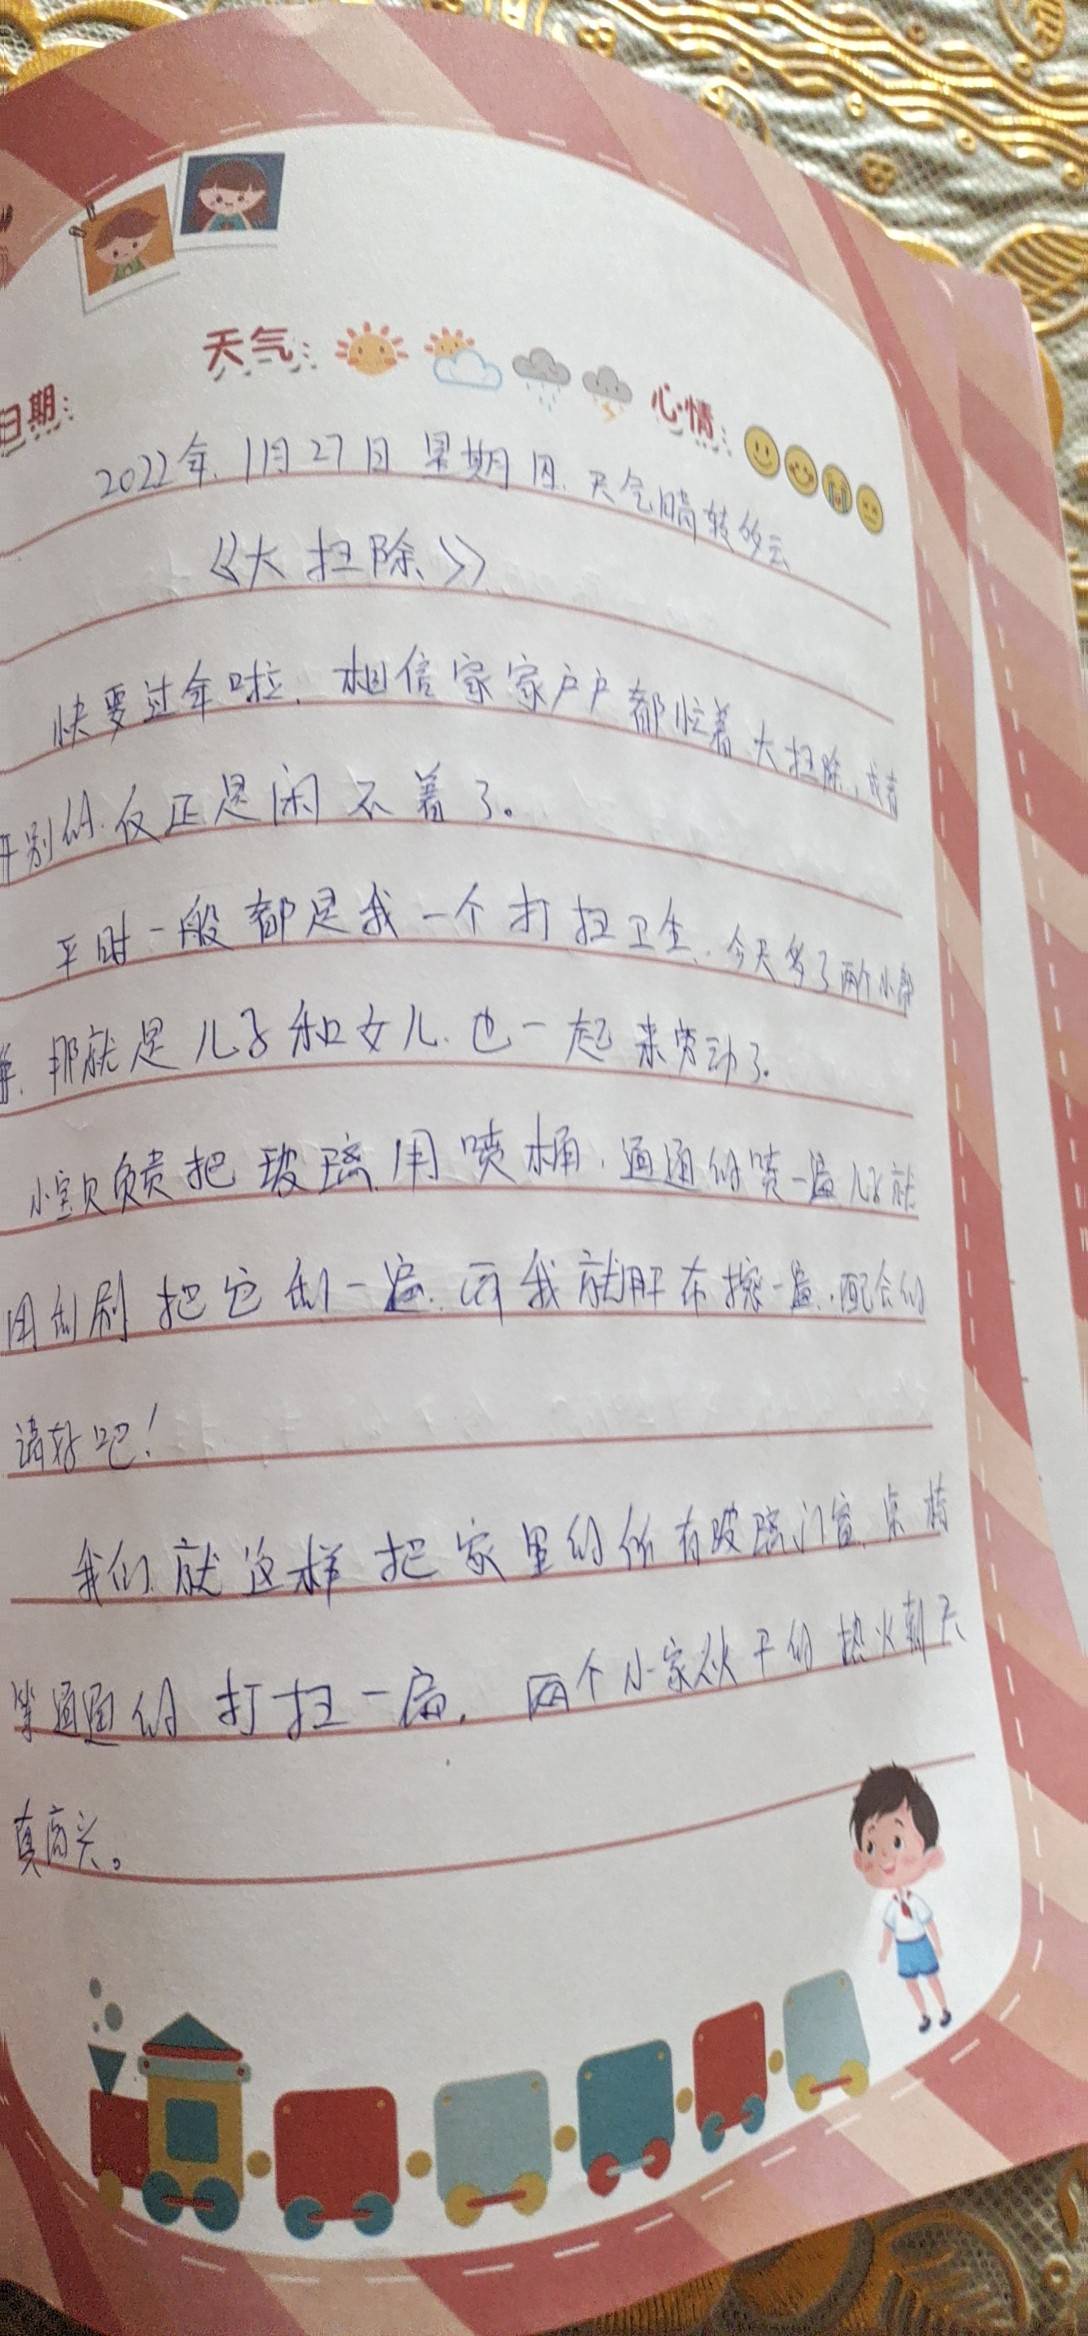 天气:
心情:
日期:
2022年.1月27日 星期四.天气晴转多云
《大扫除》
快要过年啦.相信家家户户都忙着大扫除,或者
干别的.反正是闲不着了。
平时一般都是我一个打扫卫生.今天多了两个小帮
那就是儿子和女儿.也一起来劳动了.
小宝贝负责把玻璃用喷桶.通通的喷一遍儿子就
用刮刷把它刮一遍.而我就用布擦一遍.配合的
请好吧!
我们就这样把家里的所有玻璃门窗.桌椅
等通通的打扫一遍.两个小家伙干的热火朝天
真高兴。